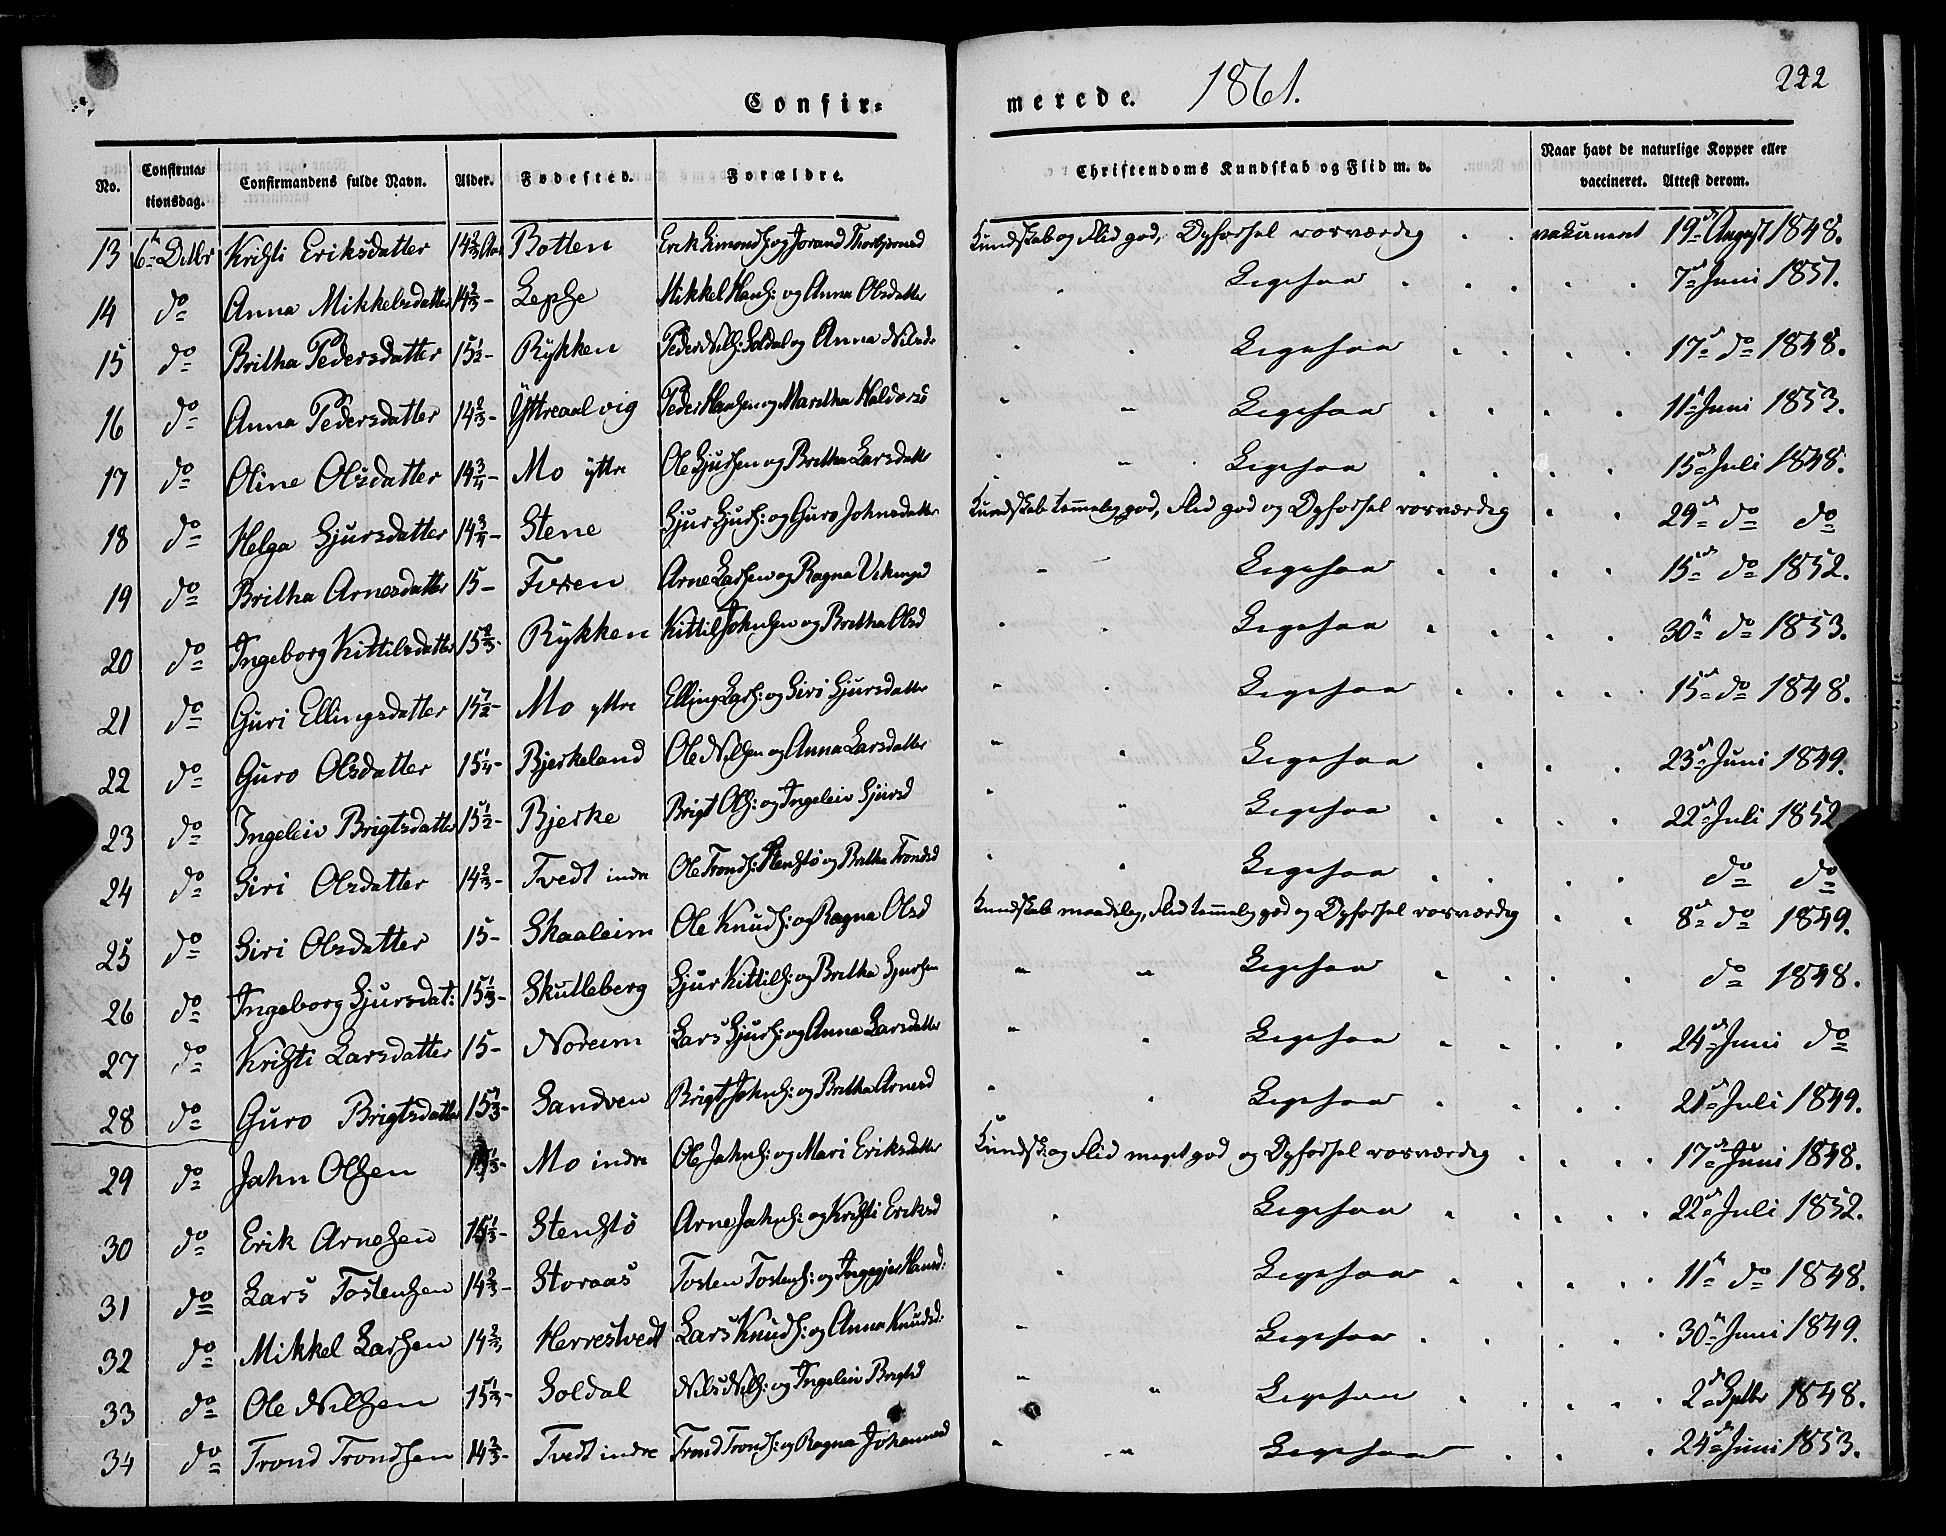 Confir=
merede. 1861. 222
No. Confirma=tionsdag. Confirmandens fulde Navn. Alder. Fødested. Forældre. Christendoms Kundskab og Flid m. v. Naar havt de naturlige Kopper eller vaccineret. Attest derom.
13 6te Octbr Kristi Eriksdatter 14 2/3 Aar Botten Erik Simonds: og Jorand Thorbjørnsd Kundskab og Flid god, Opførsel rosværdig vakcineret 19de August 1848.
14 do Anna Mikkelsdatter 14 2/3 - Lepse Mikkel Hans: og Anna Olsdatter Ligesaa 7de Juni 1851.
15 do Britha Pedersdatter 15 1/2 - Rykken Peder Nils: Soldal og Anna Nilsd. Ligesaa 17de do 1848.
16 do Anna Pedersdatter 14 2/3 - Yttreaalvig Peder Hansen og Maritha Haldorsd Ligesaa 11te Juni 1853.
17 do Oline Olsdatter 14 3/4 - Mo yttre Ole Sjursen og Britha Larsdatter Ligesaa 15de Juli 1848.
18 do Helga Sjursdatter 14 3/4 - Stene Sjur Sjurs: og Guro Johnsdatter Kundskab temmelig god, Flid god og Opførsel rosværdig 29de do do
19 do Britha Arnesdatter 15 - Fosen Arne Larsen og Ragna Vikingsd Ligesaa 15de do 1852.
20 do Ingeborg Kittilsdatter 15 2/3 - Rykken Kittil Johnsen og Britha Olsd Ligesaa 30te do 1853.
21 do Guri Ellingsdatter 15 1/2 - Mo yttre Elling Lars: og Siri Sjursdatter Ligesaa 15de do 1848.
22 do Guro Olsdatter 15 1/4 - Bjerkeland Ole Nilsen og Anna Larsdatter Ligesaa 23de Juni 1849.
23 do Ingeleiv Brigtsdatter 15 1/2 - Bjerke Brigt Ols: og Ingeleiv Sjursd Ligesaa 22de Juli 1852
24 do Siri Olsdatter 14 2/3 - Tvedt indre Ole Tronds: Stensto og Britha Trondsd Ligesaa do do
25 do Siri Olsdatter 15 - Skaaleim Ole Knuds: og Ragna Olsd Kundskab maadelig, Flid temmelig god og Opførsel rosværdig 8de do 1849.
26 do Ingeborg Sjursdat: 15 1/3 - Skutleberg Sjur Kittils: og Britha Ligesaa do 1848.
27 do Kristi Larsdatter 15 - Noreim Lars Sjurs: og Anna Larsdatter Ligesaa 24de Juni do
28 do Guro Brigtsdatter 15 - Sandven Brigt Johns: og Britha Arnesd Ligesaa 21de Juli 1849.
29 do Jahn Olsen Mo indre Ole Jahns: og Mari Eriksdatter Kundsk: og Flid meget god og Opførsel rosværdig 17de Juni 1848.
30 do Erik Arnesen 15 1/3 - Stenstø Arne Jahns: og Kristi Eriksd Ligesaa 22de Juli 1852.
31 do Lars Tostensen 14 2/3 - Storaas Tosten Tostens: og Ingegjer Hansd: Ligesaa 11te do 1848.
32 do Mikkel Larsen 14 2/3 Herrestvedt Lars Knuds: og Anna Knudsd: Ligesaa 30te Juni 1849.
33 do Ole Nilsen 15 1/3 - Soldal Nils Nils: og Ingeleiv Brigtsd Ligesaa 2den Septbr 1848.
34 do Trond Trondsen 14 2/3 - Tvedt indre Trond Tronds: og Ragna Johannesd Ligesaa 24de Juni 1853.